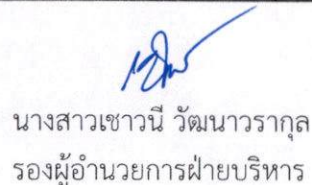 นางสาวเชาวนี วัฒนาวรากุล
รองผู้อำนวยการฝ่ายบริหาร